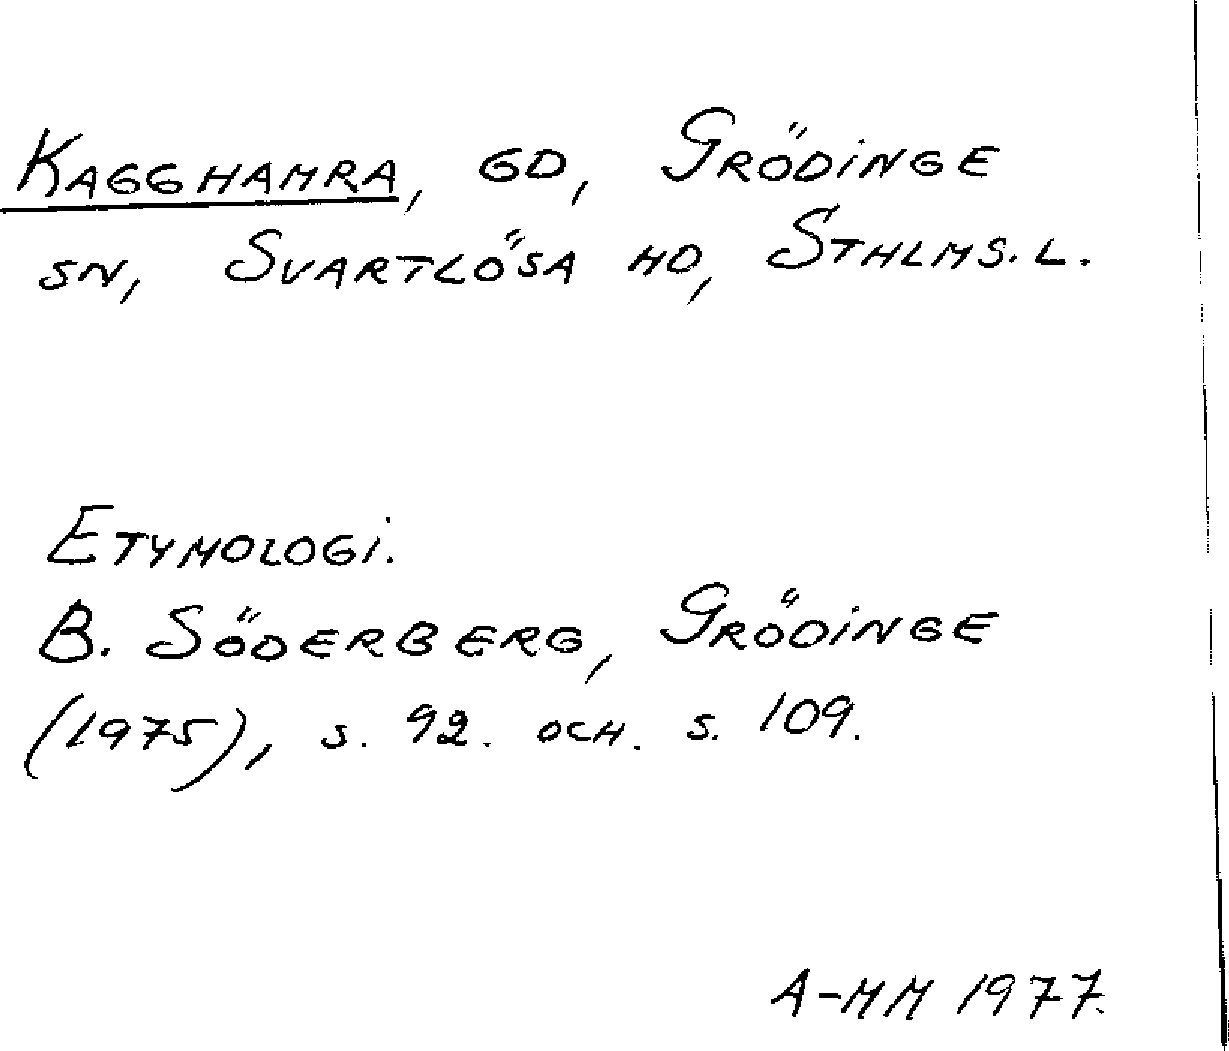 KAGGHAMRA, GD, GRÖDINGE
SN, SVARTLÖSA HD, STHLMS. L.
ETYMOLOGI.
B. SÖDERBERG, GRÖDINGE
(1975), S. 92. OCH. S. 109.
A-MM 1977.